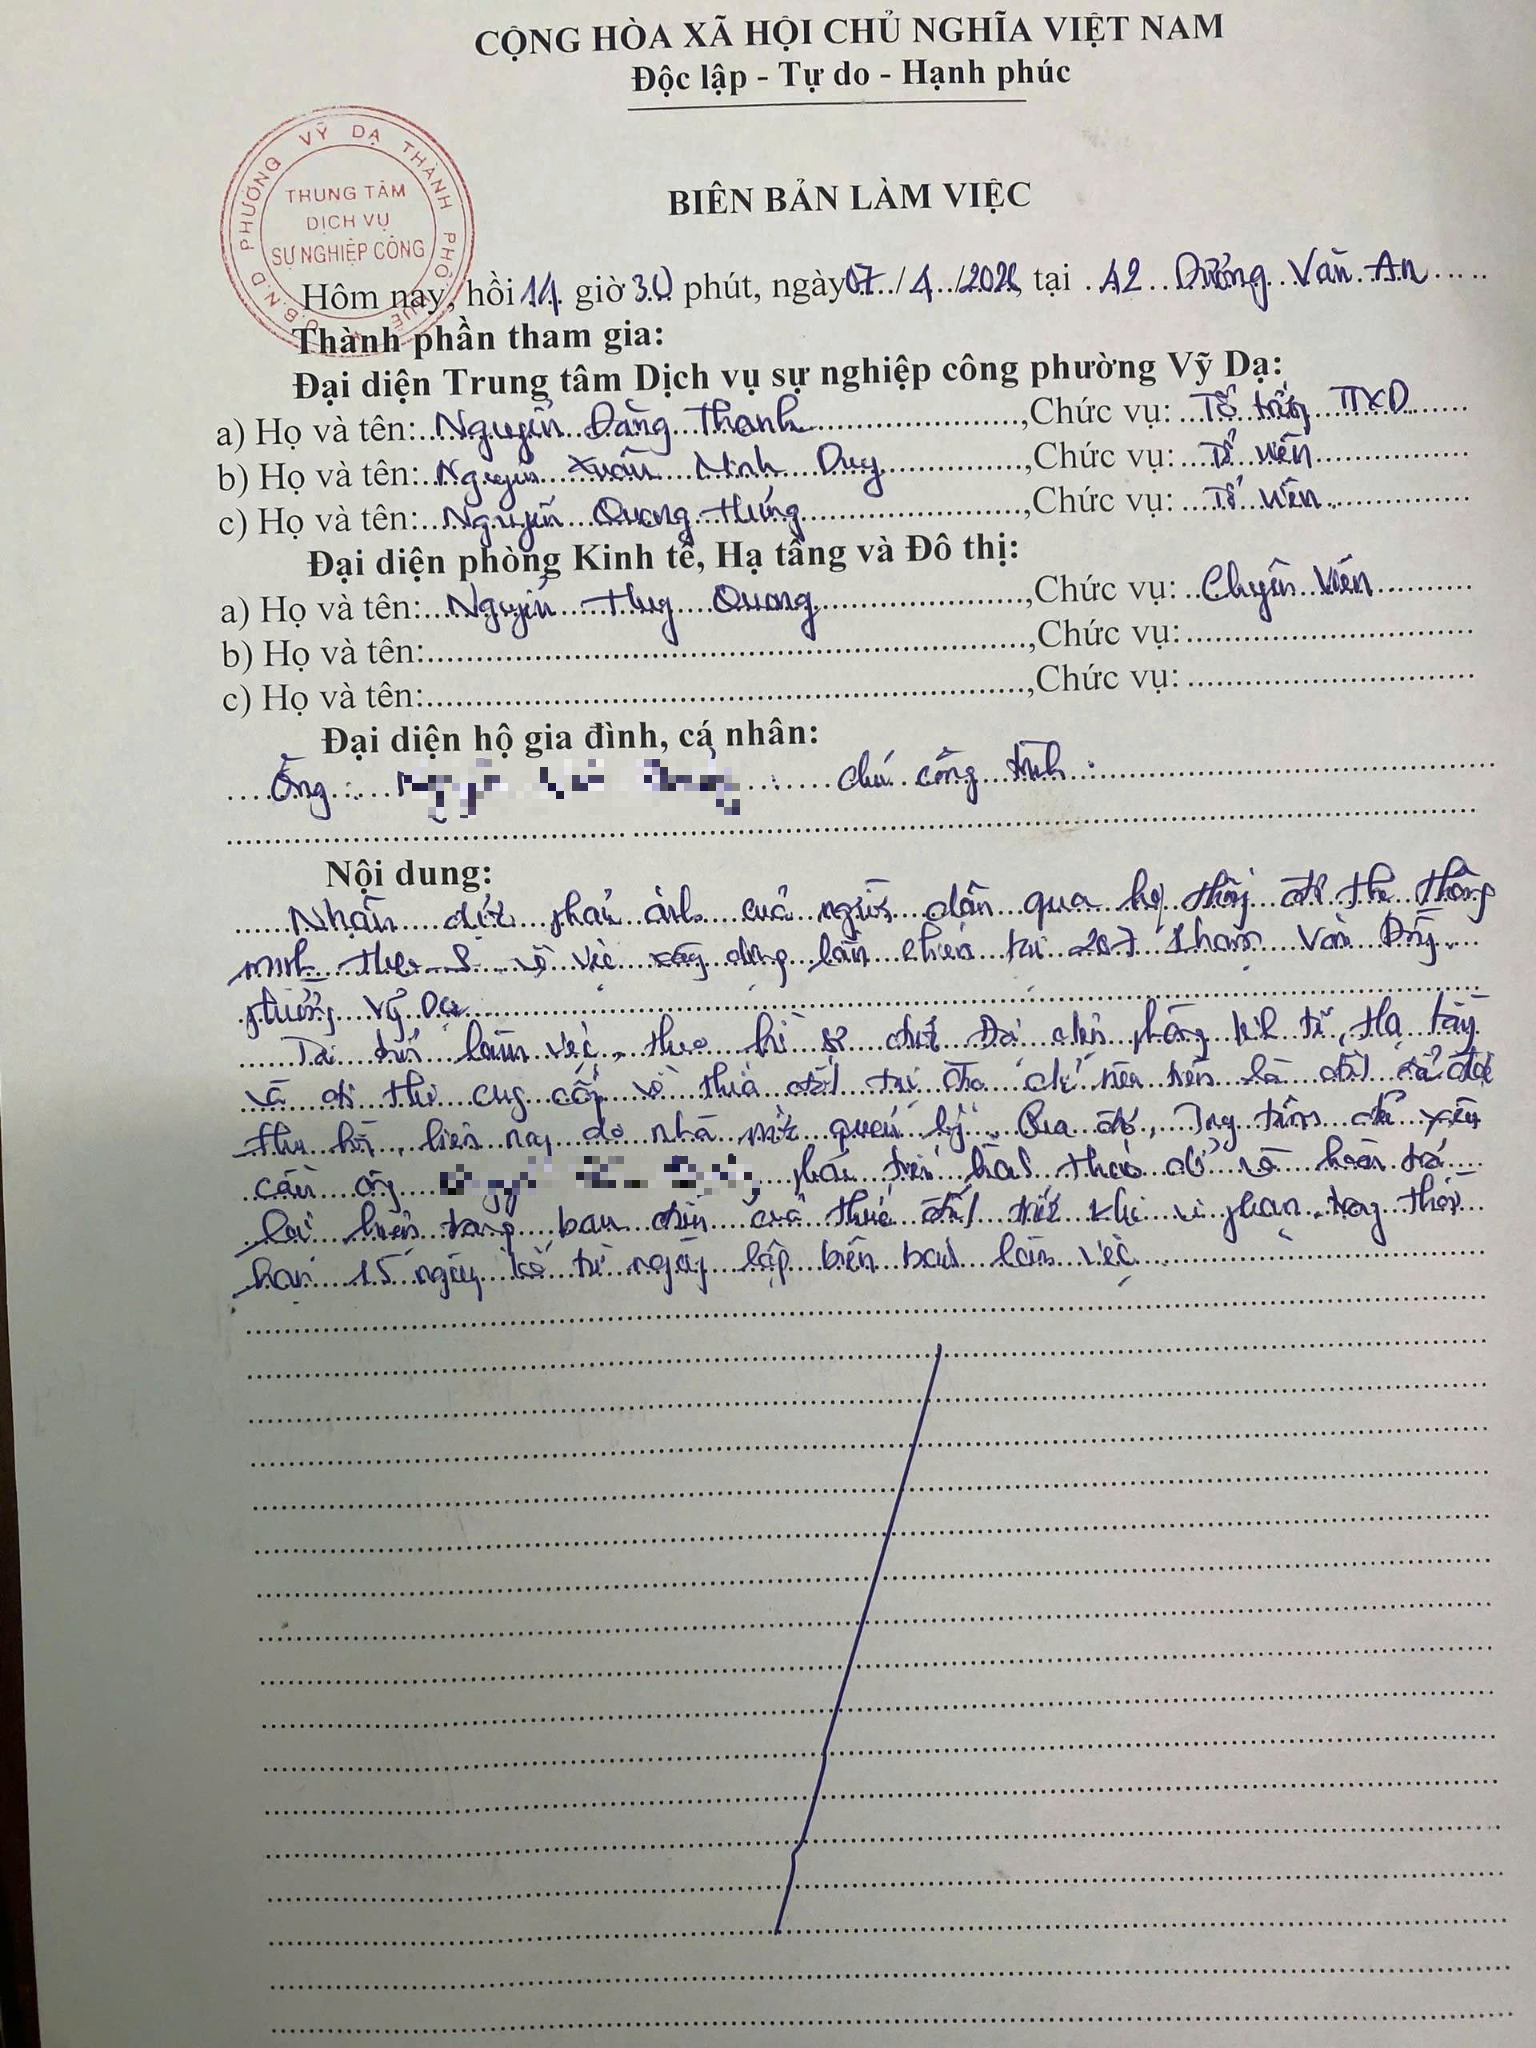 CỘNG HÒA XÃ HỘI CHỦ NGHĨA VIỆT NAM
Độc lập - Tự do - Hạnh phúc
U.B.N.D PHƯỜNG VỸ DẠ THÀNH PHỐ HUẾ
TRUNG TÂM
DỊCH VỤ
SỰ NGHIỆP CÔNG
BIÊN BẢN LÀM VIỆC
Hôm nay, hồi 14 giờ 30 phút, ngày 07/4/2026, tại 42 Dương Văn An
Thành phần tham gia:
Đại diện Trung tâm Dịch vụ sự nghiệp công phường Vỹ Dạ:
a) Họ và tên: Nguyễn Đăng Thanh, Chức vụ: Tổ trưởng TTXD
b) Họ và tên: Nguyễn Xuân Minh Duy, Chức vụ: Tổ viên
c) Họ và tên: Nguyễn Quang Hưng, Chức vụ: Tổ viên
Đại diện phòng Kinh tế, Hạ tầng và Đô thị:
a) Họ và tên: Nguyễn Huy Quang, Chức vụ: Chuyên viên
b) Họ và tên:, Chức vụ:
c) Họ và tên:, Chức vụ:
Đại diện hộ gia đình, cá nhân:
Ông: : chủ công trình:
Nội dung:
Nhận được phản ánh của người dân qua hệ thống đô thị thông
minh Hue-S về việc xây dựng lấn chiếm tại 207 Phạm Văn Đồng
phường Vỹ Dạ
Tại buổi làm việc, theo hồ sơ được Đại diện phòng Kinh tế, Hạ tầng
và đô thị cung cấp về thửa đất tại địa chỉ nêu trên là đất đã được
thu hồi, hiện nay do nhà nước quản lý. Qua đó, Trung tâm đã yêu
cầu ông phải tiến hành tháo dỡ và hoàn trả
lại hiện trạng ban đầu của thửa đất trước khi vi phạm, trong thời
hạn 15 ngày kể từ ngày lập biên bản làm việc